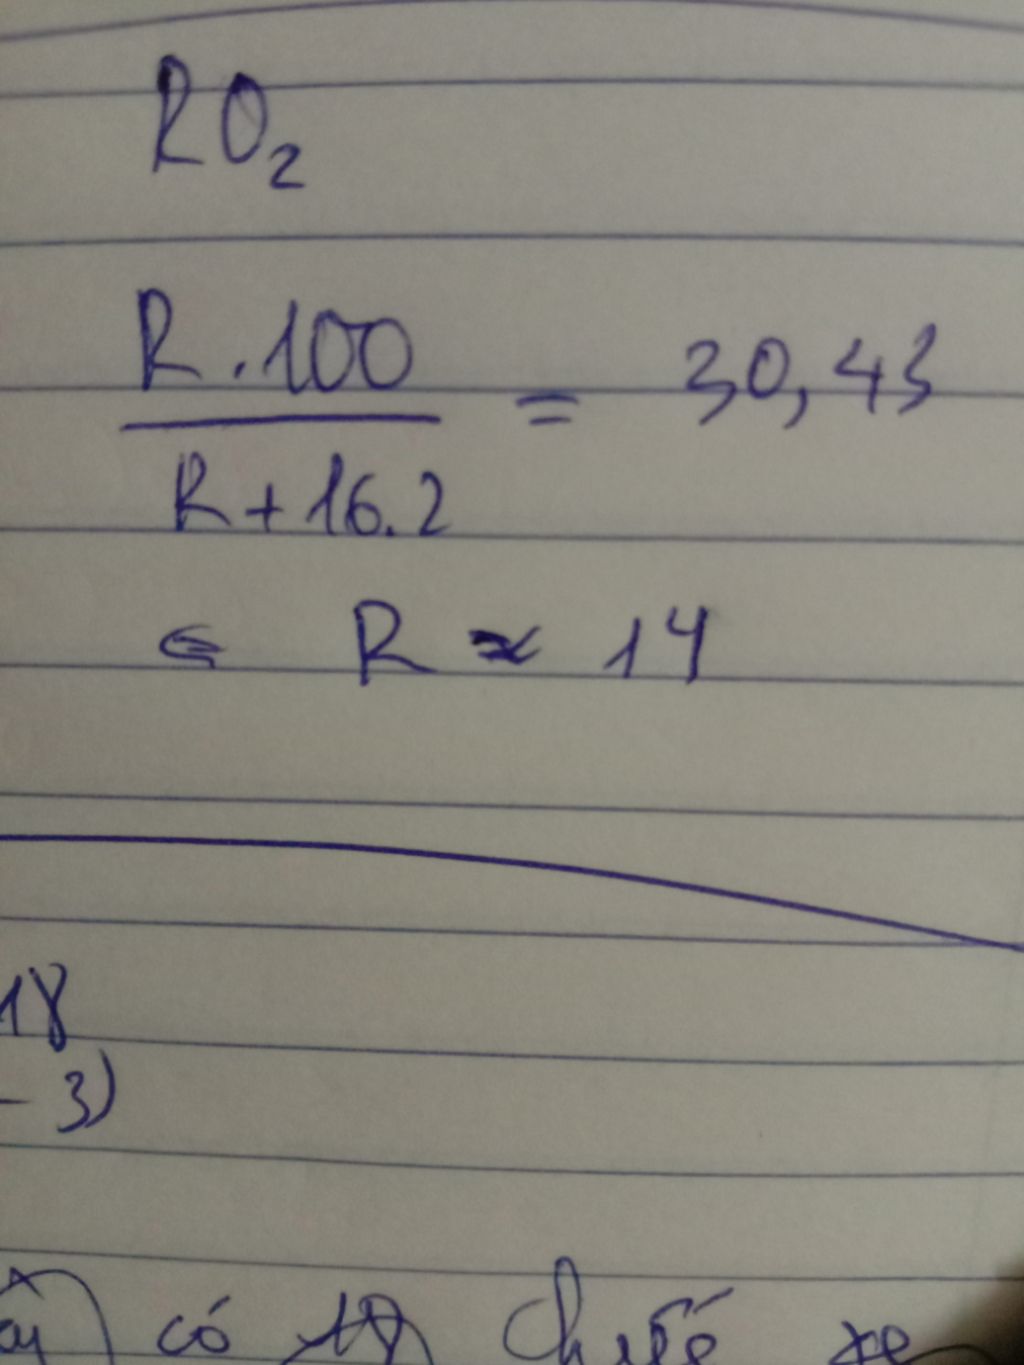 RO₂
R.100
/ R+16.2 = 30,43
⇔ R ≈ 14
18
- 3)
có chiếc xe